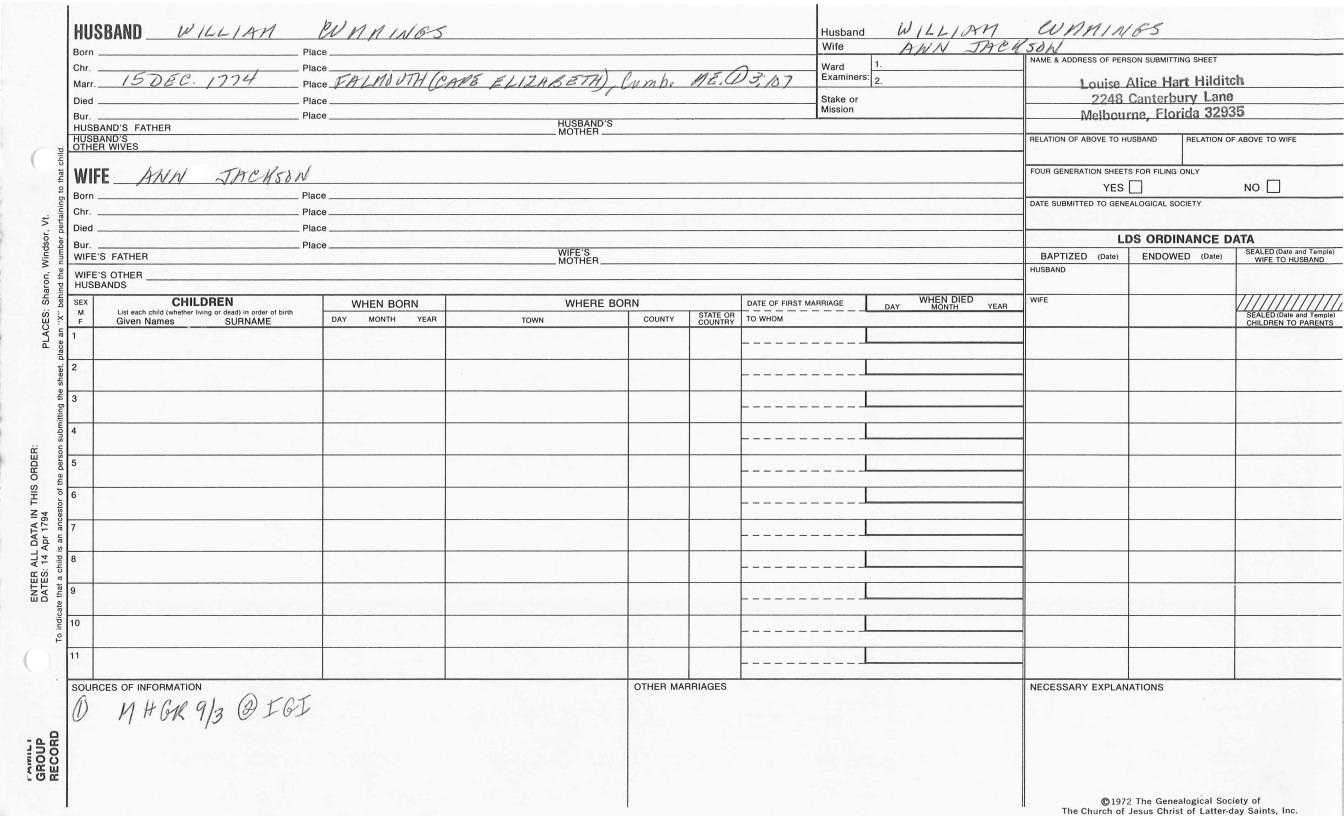 HUSBAND WILLIAM CUMMINGS
Born Place
Chr. Place
Marr. 15 DEC. 1774 Place FALMOUTH (CAPE ELIZABETH), Cumb. ME. ① 3/107
Died Place
Bur. Place
HUSBAND'S FATHER HUSBAND'S MOTHER
HUSBAND'S OTHER WIVES
WIFE ANN JACKSON
Born Place
Chr. Place
Died Place
Bur. Place
WIFE'S FATHER WIFE'S MOTHER
WIFE'S OTHER HUSBANDS
Husband WILLIAM CUMMINGS
Wife ANN JACKSON
Ward Examiners: 1.
2.
Stake or Mission
NAME & ADDRESS OF PERSON SUBMITTING SHEET
Louise Alice Hart Hilditch
2248 Canterbury Lane
Melbourne, Florida 32935
RELATION OF ABOVE TO HUSBAND RELATION OF ABOVE TO WIFE
FOUR GENERATION SHEETS FOR FILING ONLY
YES NO
DATE SUBMITTED TO GENEALOGICAL SOCIETY
LDS ORDINANCE DATA
BAPTIZED (Date) ENDOWED (Date) SEALED (Date and Temple) WIFE TO HUSBAND
HUSBAND
WIFE
SEALED (Date and Temple) CHILDREN TO PARENTS
SEX M F
CHILDREN
List each child (whether living or dead) in order of birth
Given Names SURNAME
WHEN BORN
DAY MONTH YEAR
WHERE BORN
TOWN COUNTY STATE OR COUNTRY
DATE OF FIRST MARRIAGE
TO WHOM
WHEN DIED
DAY MONTH YEAR
1
2
3
4
5
6
7
8
9
10
11
SOURCES OF INFORMATION
① MHGR 9/3 ② IGI
OTHER MARRIAGES
NECESSARY EXPLANATIONS
©1972 The Genealogical Society of
The Church of Jesus Christ of Latter-day Saints, Inc.
PLACES: Sharon, Windsor, Vt.
ENTER ALL DATA IN THIS ORDER:
DATES: 14 Apr 1794
To indicate that a child is an ancestor of the person submitting the sheet, place an "X" behind the number pertaining to that child.
FAMILY
GROUP
RECORD